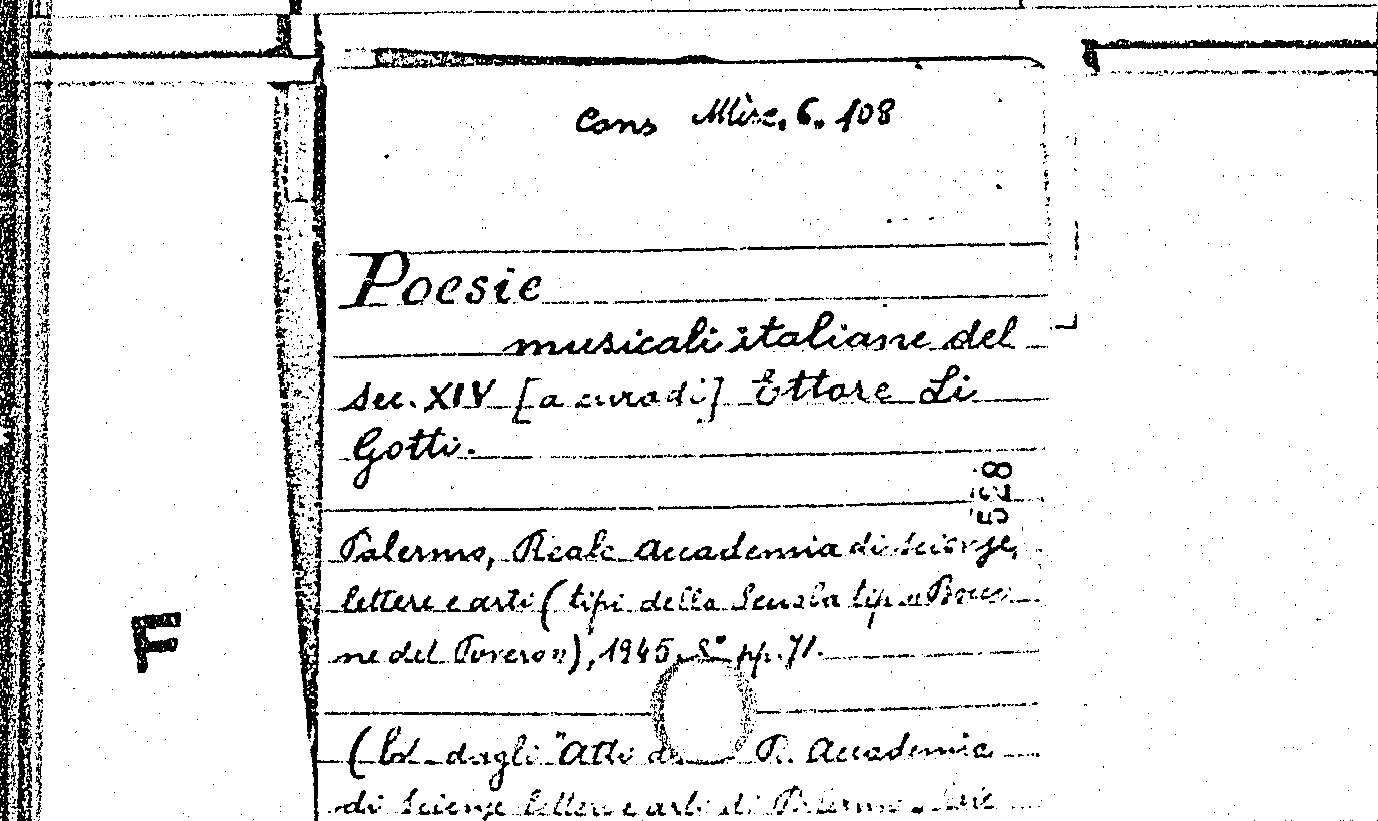 Cons Misc. 6. 108
Poesie
musicali italiane del
sec. XIV [a cura di] Ettore Li
Gotti.
528
Palermo, Reale Accademia di scienze,
lettere e arti (tipi della Scuola tip. "Boccone
ne del Povero"), 1945. 8° pp. 71.
F
( dagli "Atti R. Accademia
di Scienze lettere e arti di Palermo